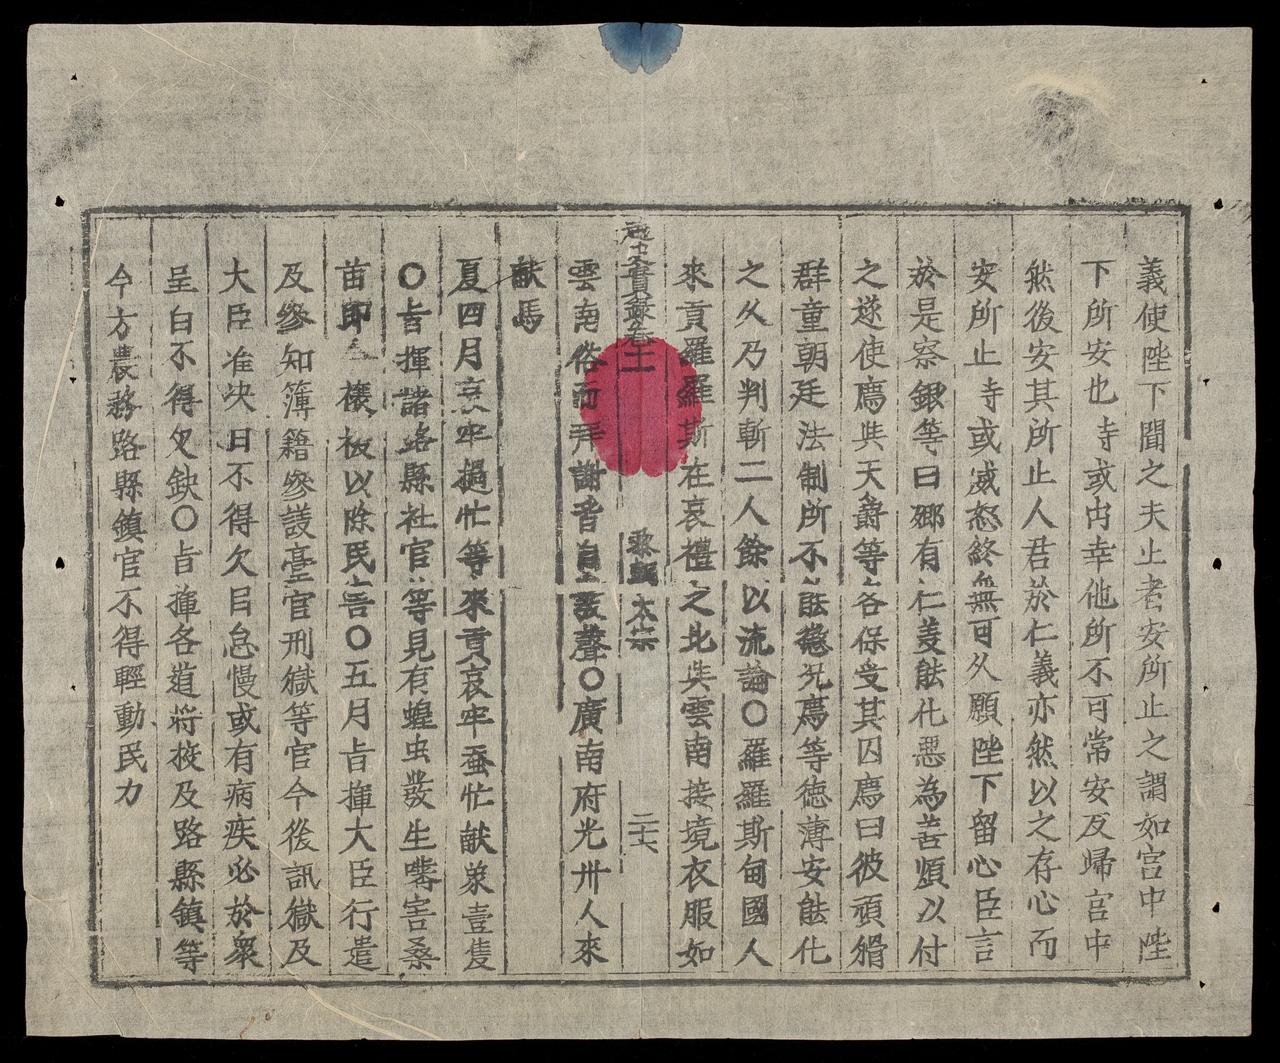 義使陛下聞之夫止者安所止之謂如宮中陛
下所安也寺或内幸他所不可常安反歸宮中
然後安其所止人君於仁義亦然以之存心而
安所止寺或威怒終無可久願陛下留心臣言
於是察銀等曰郷有仁姜能化惡為善煩以付
之遂使廌与天爵等各保受其囚廌曰彼頑猾
群童朝廷法制所不能懲况廌等德薄安能化
之久乃判斬二人餘以流論〇羅羅斯甸國人
來貢羅羅斯在哀禮之北与雲南接境衣服如
越史實録卷十一 歌朝 太宗 二十六
雲南俗而拜謝皆自設聲〇廣南府光卅人來
献馬
夏四月哀牢掴忙等來貢哀牢蚕忙献象壹隻
〇㫖揮諸路縣社官等見有蝗虫發生嚙害桑
苗即 穰被以除民害〇五月㫖揮大臣行遣
及參知簿籍參議臺官刑獄等官今後訊獄及
大臣准决日不得欠日怠慢或有病疾必於衆
呈白不得欠缺〇㫖揮各道將校及路縣鎮等
今方農務路縣鎮官不得輕動民力